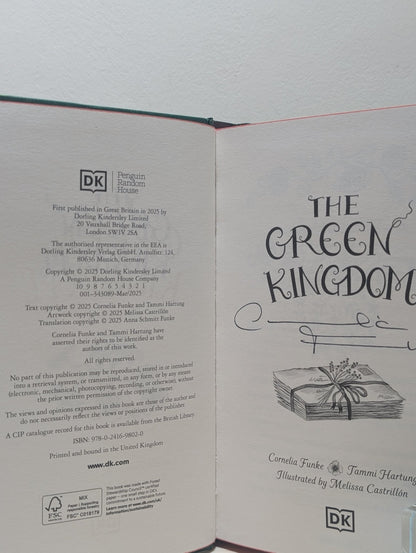 DK
Penguin
Random
House
First published in Great Britain in 2025 by
Dorling Kindersley Limited
20 Vauxhall Bridge Road,
London SW1V 2SA
The authorised representative in the EEA is
Dorling Kindersley Verlag GmbH. Arnulfstr. 124,
80636 Munich, Germany
Copyright © 2025 Dorling Kindersley Limited
A Penguin Random House Company
10 9 8 7 6 5 4 3 2 1
001–343089–Mar/2025
Text copyright © 2025 Cornelia Funke and Tammi Hartung
Artwork copyright © 2025 Melissa Castrillón
Translation copyright © 2025 Anna Schmitt Funke
Cornelia Funke and Tammi Hartung have
asserted their rights to be identified as the
authors of this work.
All rights reserved.
No part of this publication may be reproduced, stored in or introduced
into a retrieval system, or transmitted, in any form, or by any means
(electronic, mechanical, photocopying, recording, or otherwise), without
the prior written permission of the copyright owner.
The views and opinions expressed in this book are those of the author and
do not necessarily reflect the views or positions of the publisher.
A CIP catalogue record for this book is available from the British Library.
ISBN: 978-0-2416-9802-0
Printed and bound in the United Kingdom
www.dk.com
FSC
www.fsc.org
MIX
Paper | Supporting
responsible forestry
FSC® C018179
This book was made with Forest
Stewardship Council™ certified
paper – one small step in DK's
commitment to a sustainable future.
Learn more at www.dk.com/uk/
information/sustainability
THE
GREEN
KINGDOM
Cornelia Funke
Tammi Hartung
Illustrated by Melissa Castrillón
DK